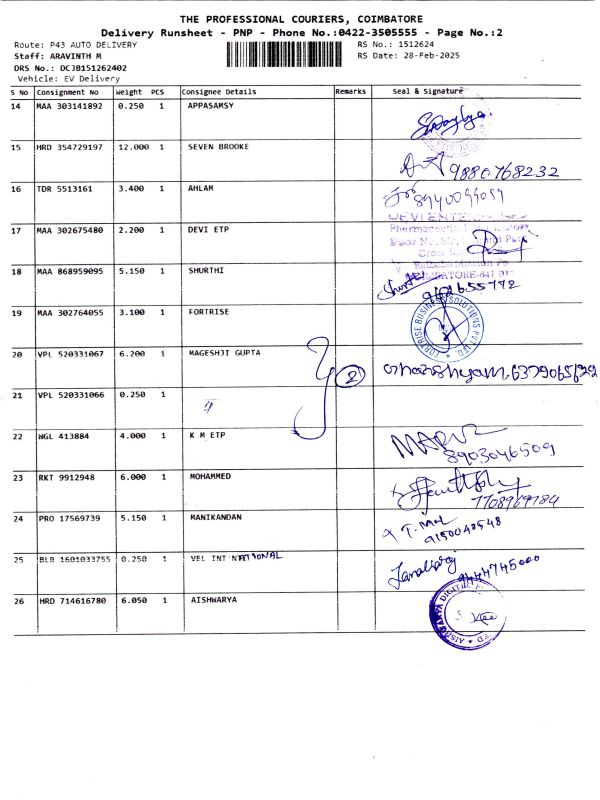 THE PROFESSIONAL COURIERS, COIMBATORE
Delivery Runsheet - PNP - Phone No.:0422-3505555 - Page No.:2
Route: P43 AUTO DELIVERY RS No.: 1512624
Staff: ARAVINTH M RS Date: 28-Feb-2025
DRS No.: DCJB151262402
Vehicle: EV Delivery
S No Consignment No Weight PCS Consignee Details Remarks Seal & Signature
14 MAA 303141892 0.250 1 APPASAMSY
15 HRD 354729197 12.000 1 SEVEN BROOKE 9880768232
16 TDR 5513161 3.400 1 AHLAM
17 MAA 302675480 2.200 1 DEVI ETP
18 MAA 868959095 5.150 1 SHURTHI
19 MAA 302764055 3.100 1 FORTRISE
20 VPL 520331067 6.200 1 MAGESHJI GUPTA 2
21 VPL 520331066 0.250 1 "
22 NGL 413884 4.000 1 K M ETP 8903046509
23 RKT 9912948 6.000 1 MOHAMMED 7708969784
24 PRO 17569739 5.150 1 MANIKANDAN 9150048548
25 BLR 1601033755 0.250 1 VEL INTNATIONAL 9444745000
26 HRD 714616780 6.050 1 AISHWARYA